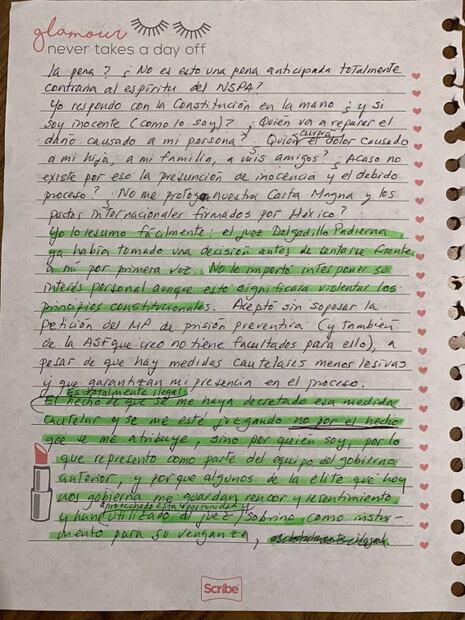 glamour
never takes a day off
la pena? ¿No es esto una pena anticipada totalmente
contraria al espíritu del NSPA?
Yo respondo con la Constitución en la mano ¿y si
soy inocente (como lo soy)? ¿Quién va a reparar el
daño causado a mi persona? ¿Quién curará el dolor causado
a mi hija, a mi familia, a mis amigos? ¿Acaso no
existe por eso la presunción de inocencia y el debido
proceso? ¿No me protege nuestra Carta Magna y los
pactos internacionales firmados por México?
Yo lo resumo fácilmente: el juez Delgadillo Padierna
ya había tomado una decisión antes de sentarse frente
a mi por primera vez. No le importó interponer su
interés personal aunque esto significara violentar los
principios constitucionales. Aceptó sin sopesar la
petición del MP de prisión preventiva (y también
de la ASF que creo no tiene facultades para ello), a
pesar de que hay medidas cautelares menos lesivas
y que garantizan mi presencia en el proceso.
Es totalmente ilegal
El hecho de que se me haya decretado esa medida
cautelar y se me esté juzgando no por el hecho
que se me atribuye, sino por quien soy, por lo
que represento como parte del equipo del gobierno
anterior, y porque algunos de la élite que hoy
nos gobierna me guardan rencor y resentimiento
aprovechado esta oportunidad
y han utilizado al juez, sobrino como instru-
mento para su venganza,
Scribe